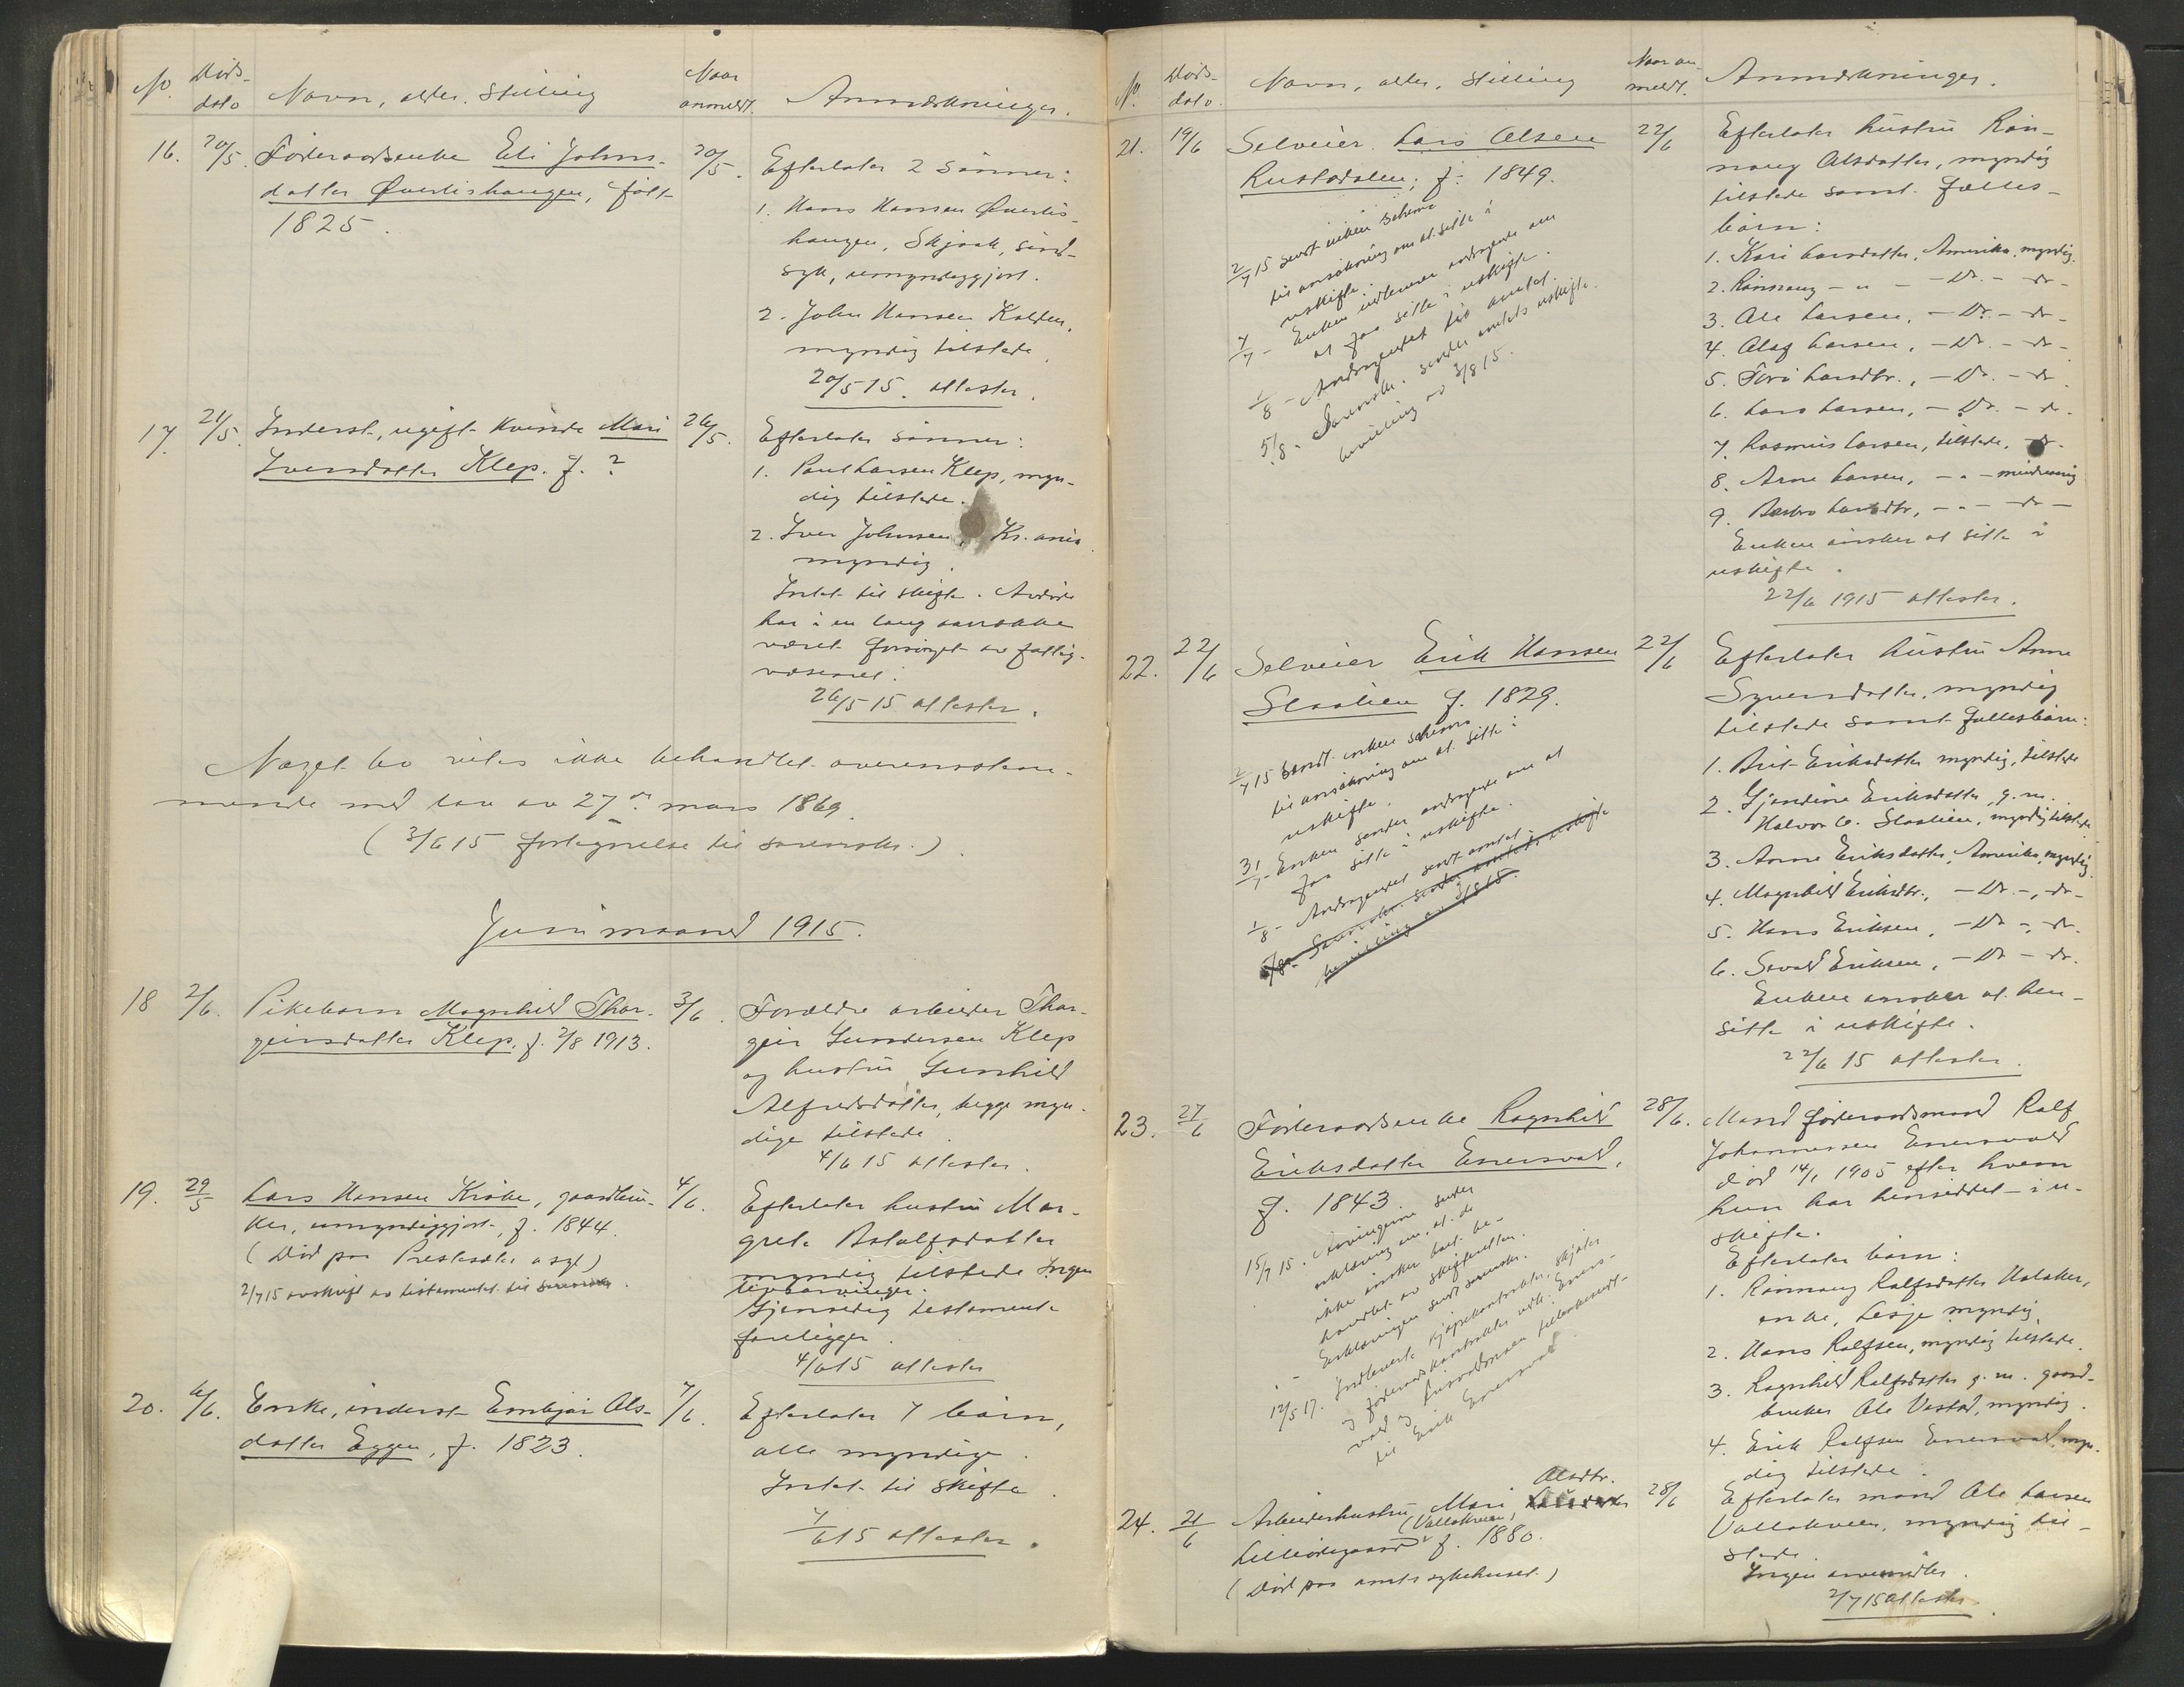 No. Døds- dato Navn, alder. Stilling Naar anmeldt. Anmærkninger.
16. 20/5. Føderaadsenke Eli Johns-
datter Øverlishaugen, født
1825.
20/5. Efterlater 2 sønner:
1. Hans Hansen Øverlis-
haugen, Skjaak, sind-
syk, umyndiggjort.
2. John Hansen Kolden,
myndig tilstede.
20/5 15. attester.
17. 21/5. Inderst, ugift kvinde Mari
Iversdatter Klep. f. ?
26/5. Efterlater sønner:
1. Paul Larsen Klep, myn-
dig tilstede.
2. Iver Johnsen, Kr.ania
myndig.
Intet til skifte. Avdøde
har i en lang aarrække
været forsørget av fattig-
væsenet.
26/5 15 attester.
Noget bo vites ikke behandlet overensstem-
mende med lov av 27de mars 1869.
(3/6 15 fortegnelse til sorenskr.).
Juni maaned 1915.
18 2/6. Pikebarn Magnhild Thor-
geirsdatter Klep, f. 2/8 1913.
3/6. Forældre arbeider Thor-
geir Gundersen Klep
og hustru Gunhild
Alfredsdatter, begge myn-
dige tilstede.
4/6 15 attester.
19. 29/5 Lars Hansen Kroke, gaardbru-
ker, umyndiggjort, f. 1844.
(Død paa Presteseter asyl)
2/7 15 avskrift av testamentet til sorenskr.
4/6. Efterlater hustru Mar-
grete Botolfsdatter
myndig tilstede Ingen
livsarvinger.
Gjensidig testamente
foreligger.
4/6 15 attester
20. 6/6. Enke, inderst Embjør Ols-
datter Eggen, f. 1823.
7/6. Efterlater 7 børn,
alle myndige.
Intet til skifte.
7/6 15 attester.
No. Døds- dato. Navn, alder, Stilling Naar an- meldt. Anmærkninger.
21. 19/6 Selveier Lars Olsen
Rustødalen; f. 1849.
2/7 15 sendt enken schema
til ansøkning om at sitte i
uskifte.
7/7 - Enken indleverer andragende om
at faa sitte i uskifte.
1/8 - Andragendet til amtet.
5/8 - Sorenskr. sender amtets uskifte-
bevilling av 3/8 15.
22/6 Efterlater hustru Røn-
naug Olsdatter, myndig
tilstede samt fælles-
børn:
1. Kari Larsdatter, Amerika, myndig.
2. Rønnaug - " - - Do. - do -
3. Ole Larsen, - Do. - do -
4. Olaf Larsen, - Do. - do -
5. Tori Larsdtr., - Do. - do
6. Lars Larsen, - Do. - do.
7. Rasmus Larsen, tilstede, - do.
8. Arne Larsen, - " - mindreaarig
9. Barbro Larsdtr, - " - do -
Enken ønsker at sitte i
uskifte.
22/6 1915 attester.
22. 22/6 Selveier Erik Hansen
Slaalien f. 1829.
2/7 15 sendt enken schema
til ansøkning om at sitte i
uskifte.
31/7 - Enken sender andragende om at
faa sitte i uskifte.
1/8 - Andragendet sendt amtet.
5/8 - Sorenskr. sender amtets uskifte
bevilling av 3/8 15.
22/6 Efterlater hustru Anne
Syversdatter, myndig
tilstede samt fællesbørn:
1. Brit Eriksdatter myndig, tilstede
2. Gjendine Eriksdatter, g.m.
Halvor E. Slaalien, myndig tilstede
3. Anne Eriksdatter, Amerika, myndig.
4. Magnhild Eriksdtr., - Do -, do -
5. Hans Eriksen, - Do -, do.
6. Sevald Eriksen, - Do - do.
Enken ønsker at hen-
sitte i uskifte.
22/6 15 attester.
23. 27/6 Føderaadsenke Ragnhild
Eriksdatter Enersvold,
f. 1843
15/7 15. Arvingerne sender
erklæring om, at de
ikke ønsker boet be-
handlet av skifteretten.
" - Erklæringen sendt sorenskr.
12/5 17. Indleverte kjøpekontrakter, skjøter
og føderaadskontrakter vedk. Eners-
vold og tilbakesendt
til Erik Enersvold
28/6. Mand føderaadsmand Rolf
Johannessen Enersvold
død 14/1 1905 efter hvem
hun har hensiddet i u-
skifte.
Efterlater børn:
1. Rønnaug Rolfsdatter Holaker,
enke, Lesje myndig,
2. Hans Rolfsen, myndig tilstede.
3. Ragnhild Rolfsdatter g.m. gaard-
bruker Ole Vestad, myndig.
4. Erik Rolfsen Enersvold, myn-
dig tilstede.
24. 21/6 Arbeiderhustru Mari Olsdtr.
(Vollakveen,
Lilleødegaard f. 1880.
(Død paa amtssykehuset)
28/6 Efterlater mand Ole Larsen
Vollakveen, myndig til-
stede.
Ingen umyndige.
2/7 15 attester